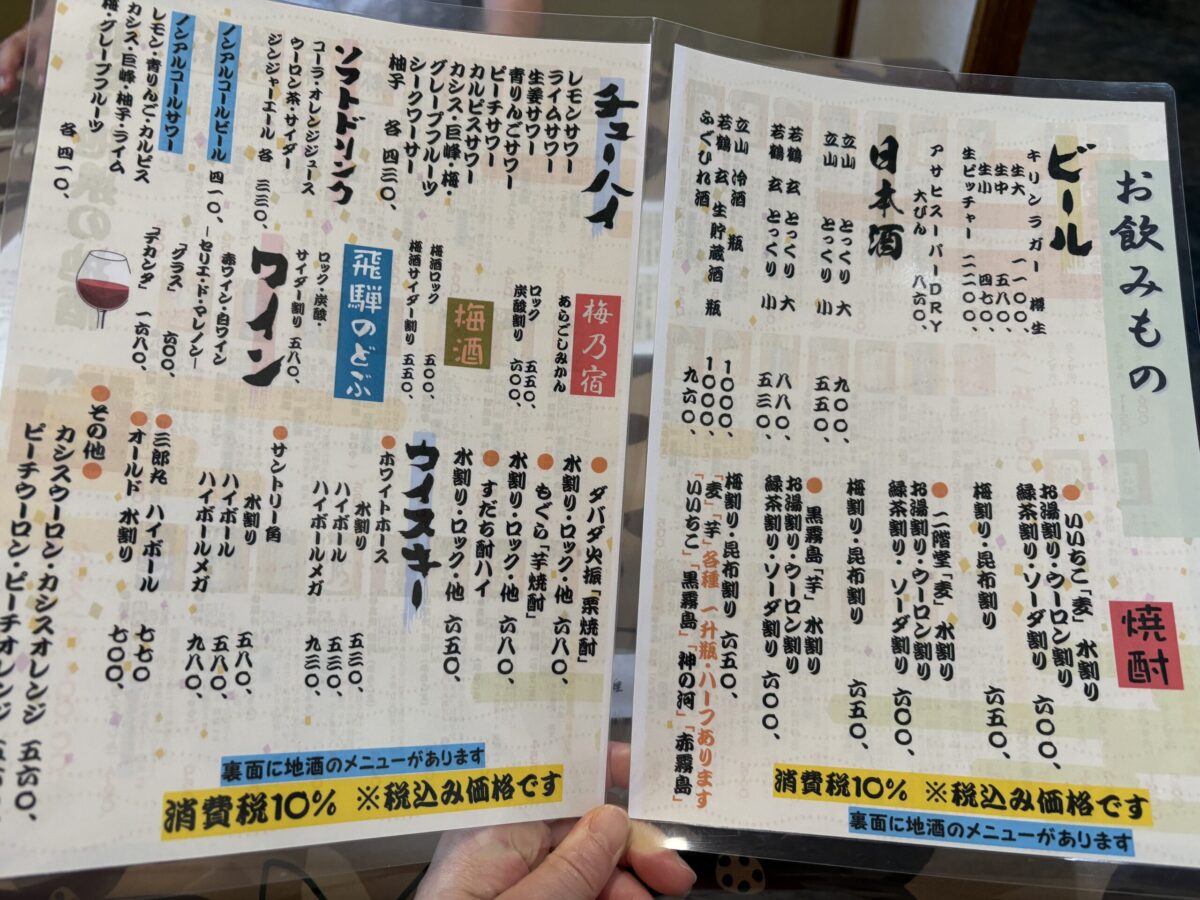 お飲みもの
ビール
キリンラガー 樽生
生大 一一〇〇、
生中 五八〇、
生小 四七〇、
生ピッチャー 二二〇〇、
アサヒスーパーDRY
大びん 八六〇、
日本酒
立山 とっくり 大 九〇〇、
立山 とっくり 小 五五〇、
若鶴 玄 とっくり 大 八八〇、
若鶴 玄 とっくり 小 五三〇、
立山 冷酒 瓶 1000、
若鶴 玄 生貯蔵酒 瓶 1000、
ふぐひれ酒 九六〇、
焼酎
●いいちこ「麦」 水割り
お湯割り・ウーロン割り
緑茶割り・ソーダ割り 六〇〇、
梅割り・昆布割り 六五〇、
●二階堂「麦」 水割り
お湯割り・ウーロン割り
緑茶割り・ソーダ割り 六〇〇、
梅割り・昆布割り 六五〇、
●黒霧島「芋」 水割り
お湯割り・ウーロン割り
緑茶割り・ソーダ割り 六〇〇、
梅割り・昆布割り 六五〇、
「麦」「芋」各種 一升瓶・ハーフあります
「いいちこ」「黒霧島」「神の河」「赤霧島」
消費税10% ※税込み価格です
裏面に地酒のメニューがあります
チューハイ
レモンサワー
ライムサワー
生姜サワー
青りんごサワー
ピーチサワー
カルピスサワー
カシス・巨峰・梅・
グレープフルーツ
シークワーサー
柚子 各 四三〇、
ソフトドリンク
コーラ・オレンジジュース
ウーロン茶・サイダー
ジンジャーエール 各 三三〇、
ノンアルコールビール 四一〇、
ノンアルコールサワー
レモン・青りんご・カルピス
カシス・巨峰・柚子・ライム
梅・グレープフルーツ
各 四一〇、
梅乃宿
あらごしみかん
ロック 五五〇、
炭酸割り 六〇〇、
梅酒
梅酒ロック 五〇〇、
梅酒サイダー割り 五五〇、
飛騨のどぶ
ロック・炭酸・
サイダー割り 五八〇、
ワイン
赤ワイン・白ワイン
―セリエ・ド・マレノン―
「グラス」 六〇〇、
「デカンタ」 一六八〇、
●ダバダ火振「栗焼酎」
水割り・ロック・他 六八〇、
●もぐら「芋焼酎」
水割り・ロック・他 六八〇、
●すだち酎ハイ
水割り・ロック・他 六五〇、
ウイスキー
●ホワイトホース
水割り 五三〇、
ハイボール 五三〇、
ハイボールメガ 九三〇、
●サントリー角
水割り 五八〇、
ハイボール 五八〇、
ハイボールメガ 九八〇、
●三郎丸 ハイボール 七七〇
●オールド 水割り 七〇〇、
●その他●
カシスウーロン・カシスオレンジ 五六〇、
ピーチウーロン・ピーチオレンジ
裏面に地酒のメニューがあります
消費税10% ※税込み価格です